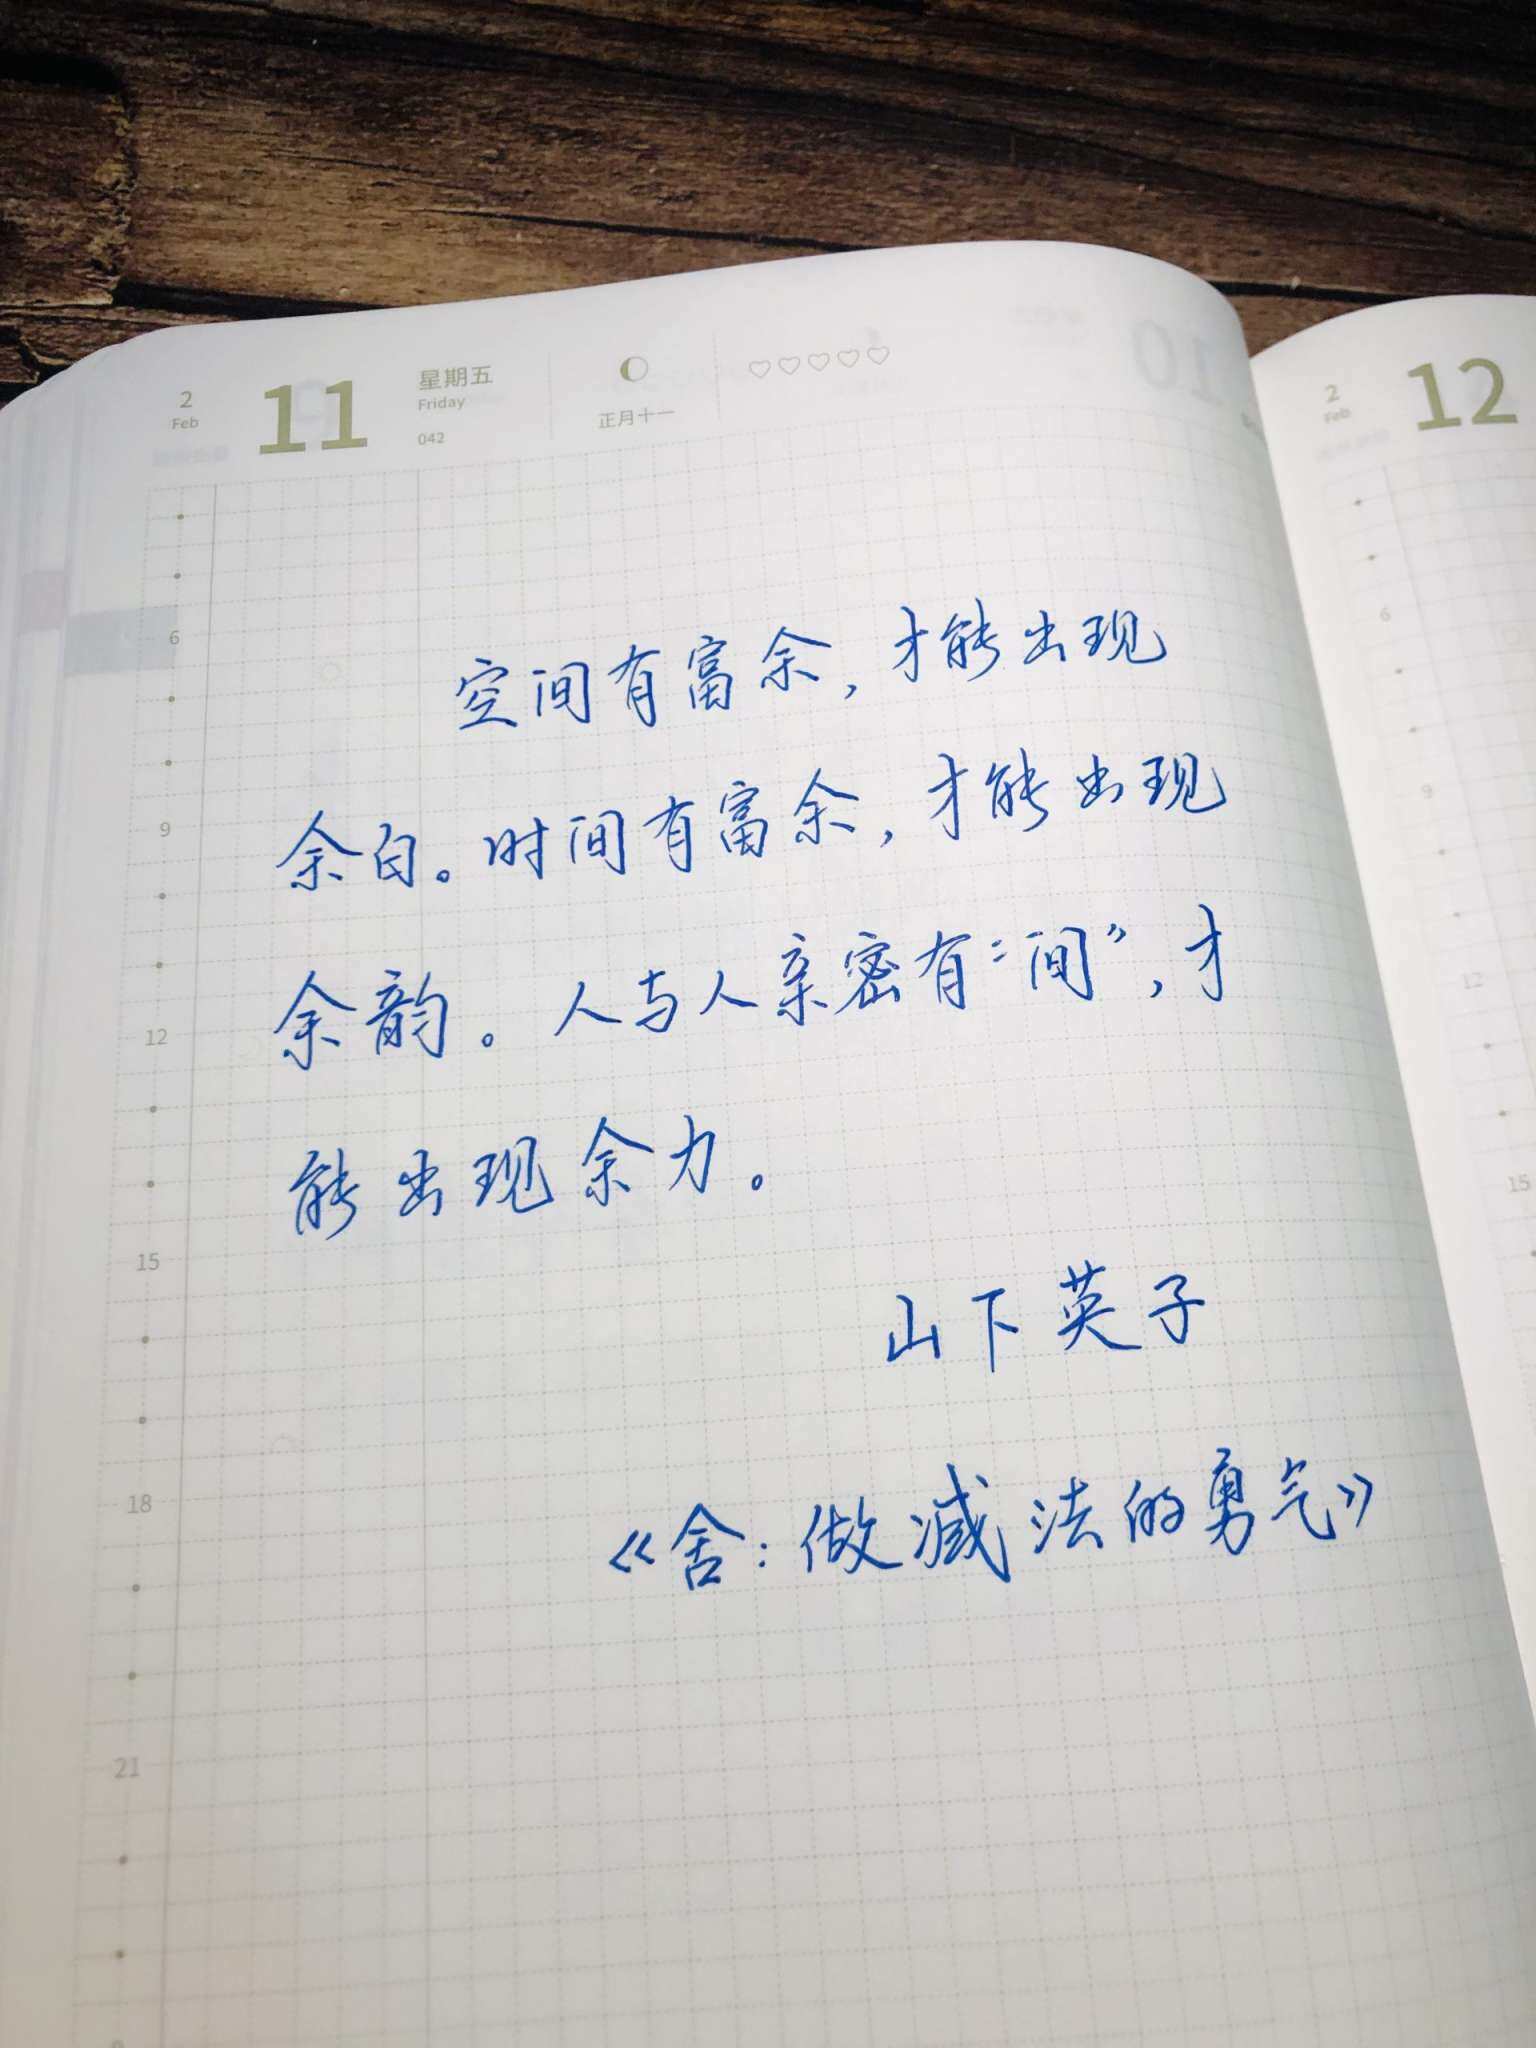 2
Feb
11
星期五
Friday
042
正月十一
2
Feb
12
6
9
12
15
18
21
6
9
12
15
空间有富余，才能出现
余白。时间有富余，才能出现
余韵。人与人亲密有“间”，才
能出现余力。
山下英子
《舍：做减法的勇气》